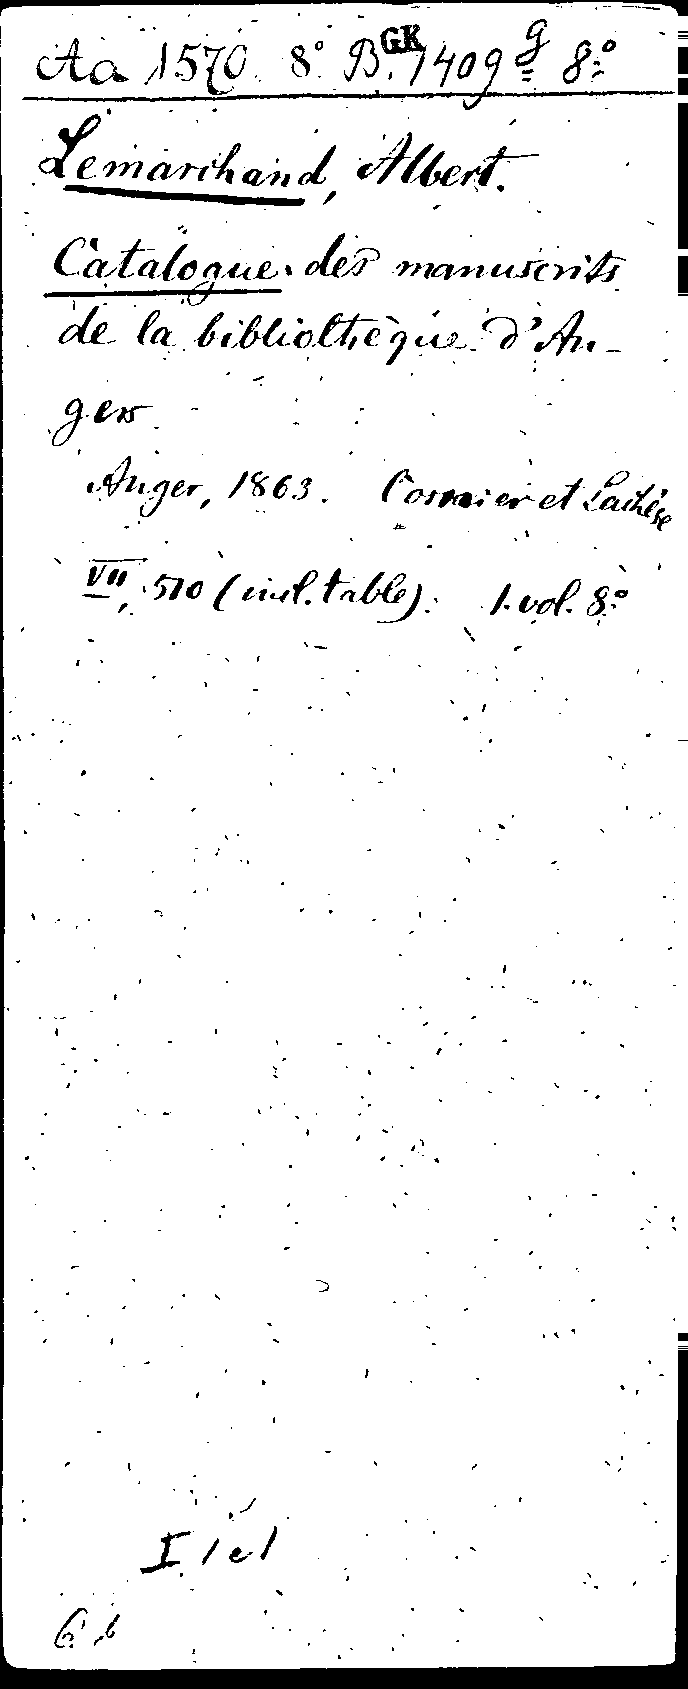 Aa 1570. 8° B. GK 1409 g 8°
Lemarchand, Albert.
Catalogue des manuscrits
de la bibliothèque d'An-
gers
Anger, 1863. Cosnier et Lachèse
VII, 510 (incl. table). 1. vol. 8°
I 1 e 1